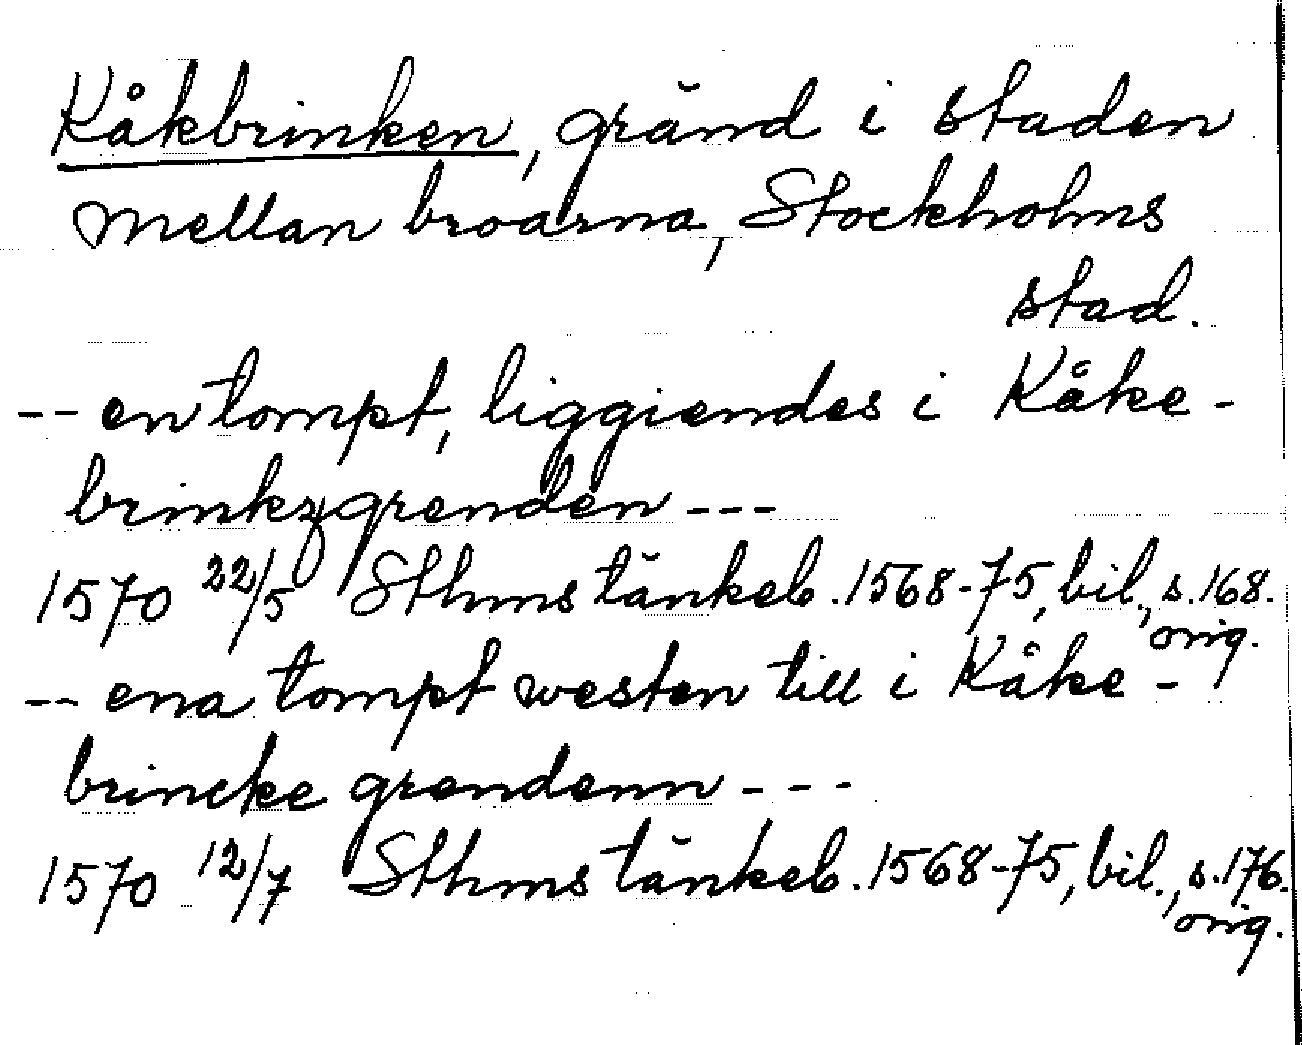 Kåkbrinken, gränd i staden
mellan broarna, Stockholms
stad.
-- en tompt, liggiendes i Kåke-
brinkzgrenden ---
1570 22/5 Sthms tänkeb. 1568-75, bil., s. 168.
orig.
-- ena tompt westen till i Kåke-
brincke grendenn ---
1570 12/7 Sthms tänkeb. 1568-75, bil., s. 176.
orig.